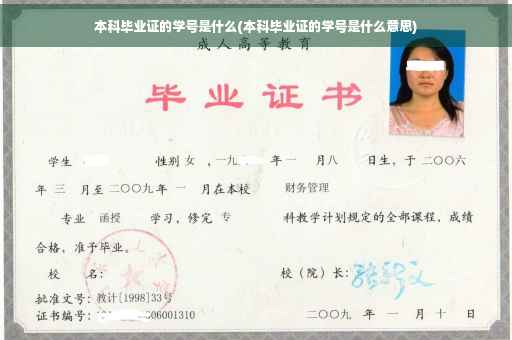 本科毕业证的学号是什么(本科毕业证的学号是什么意思)
成人高等教育
毕业证书
学生 性别 女 ,一九 年 一 月 八 日生，于 二〇〇六
年 三 月至 二〇〇九 年 一 月在本校 财务管理
专业 函授 学习，修完 专 科教学计划规定的全部课程，成绩
合格，准予毕业。
校 名： 校（院）长：
批准文号：教计[1998]33号
证书编号： 06001310 二〇〇九 年 一 月 十 日